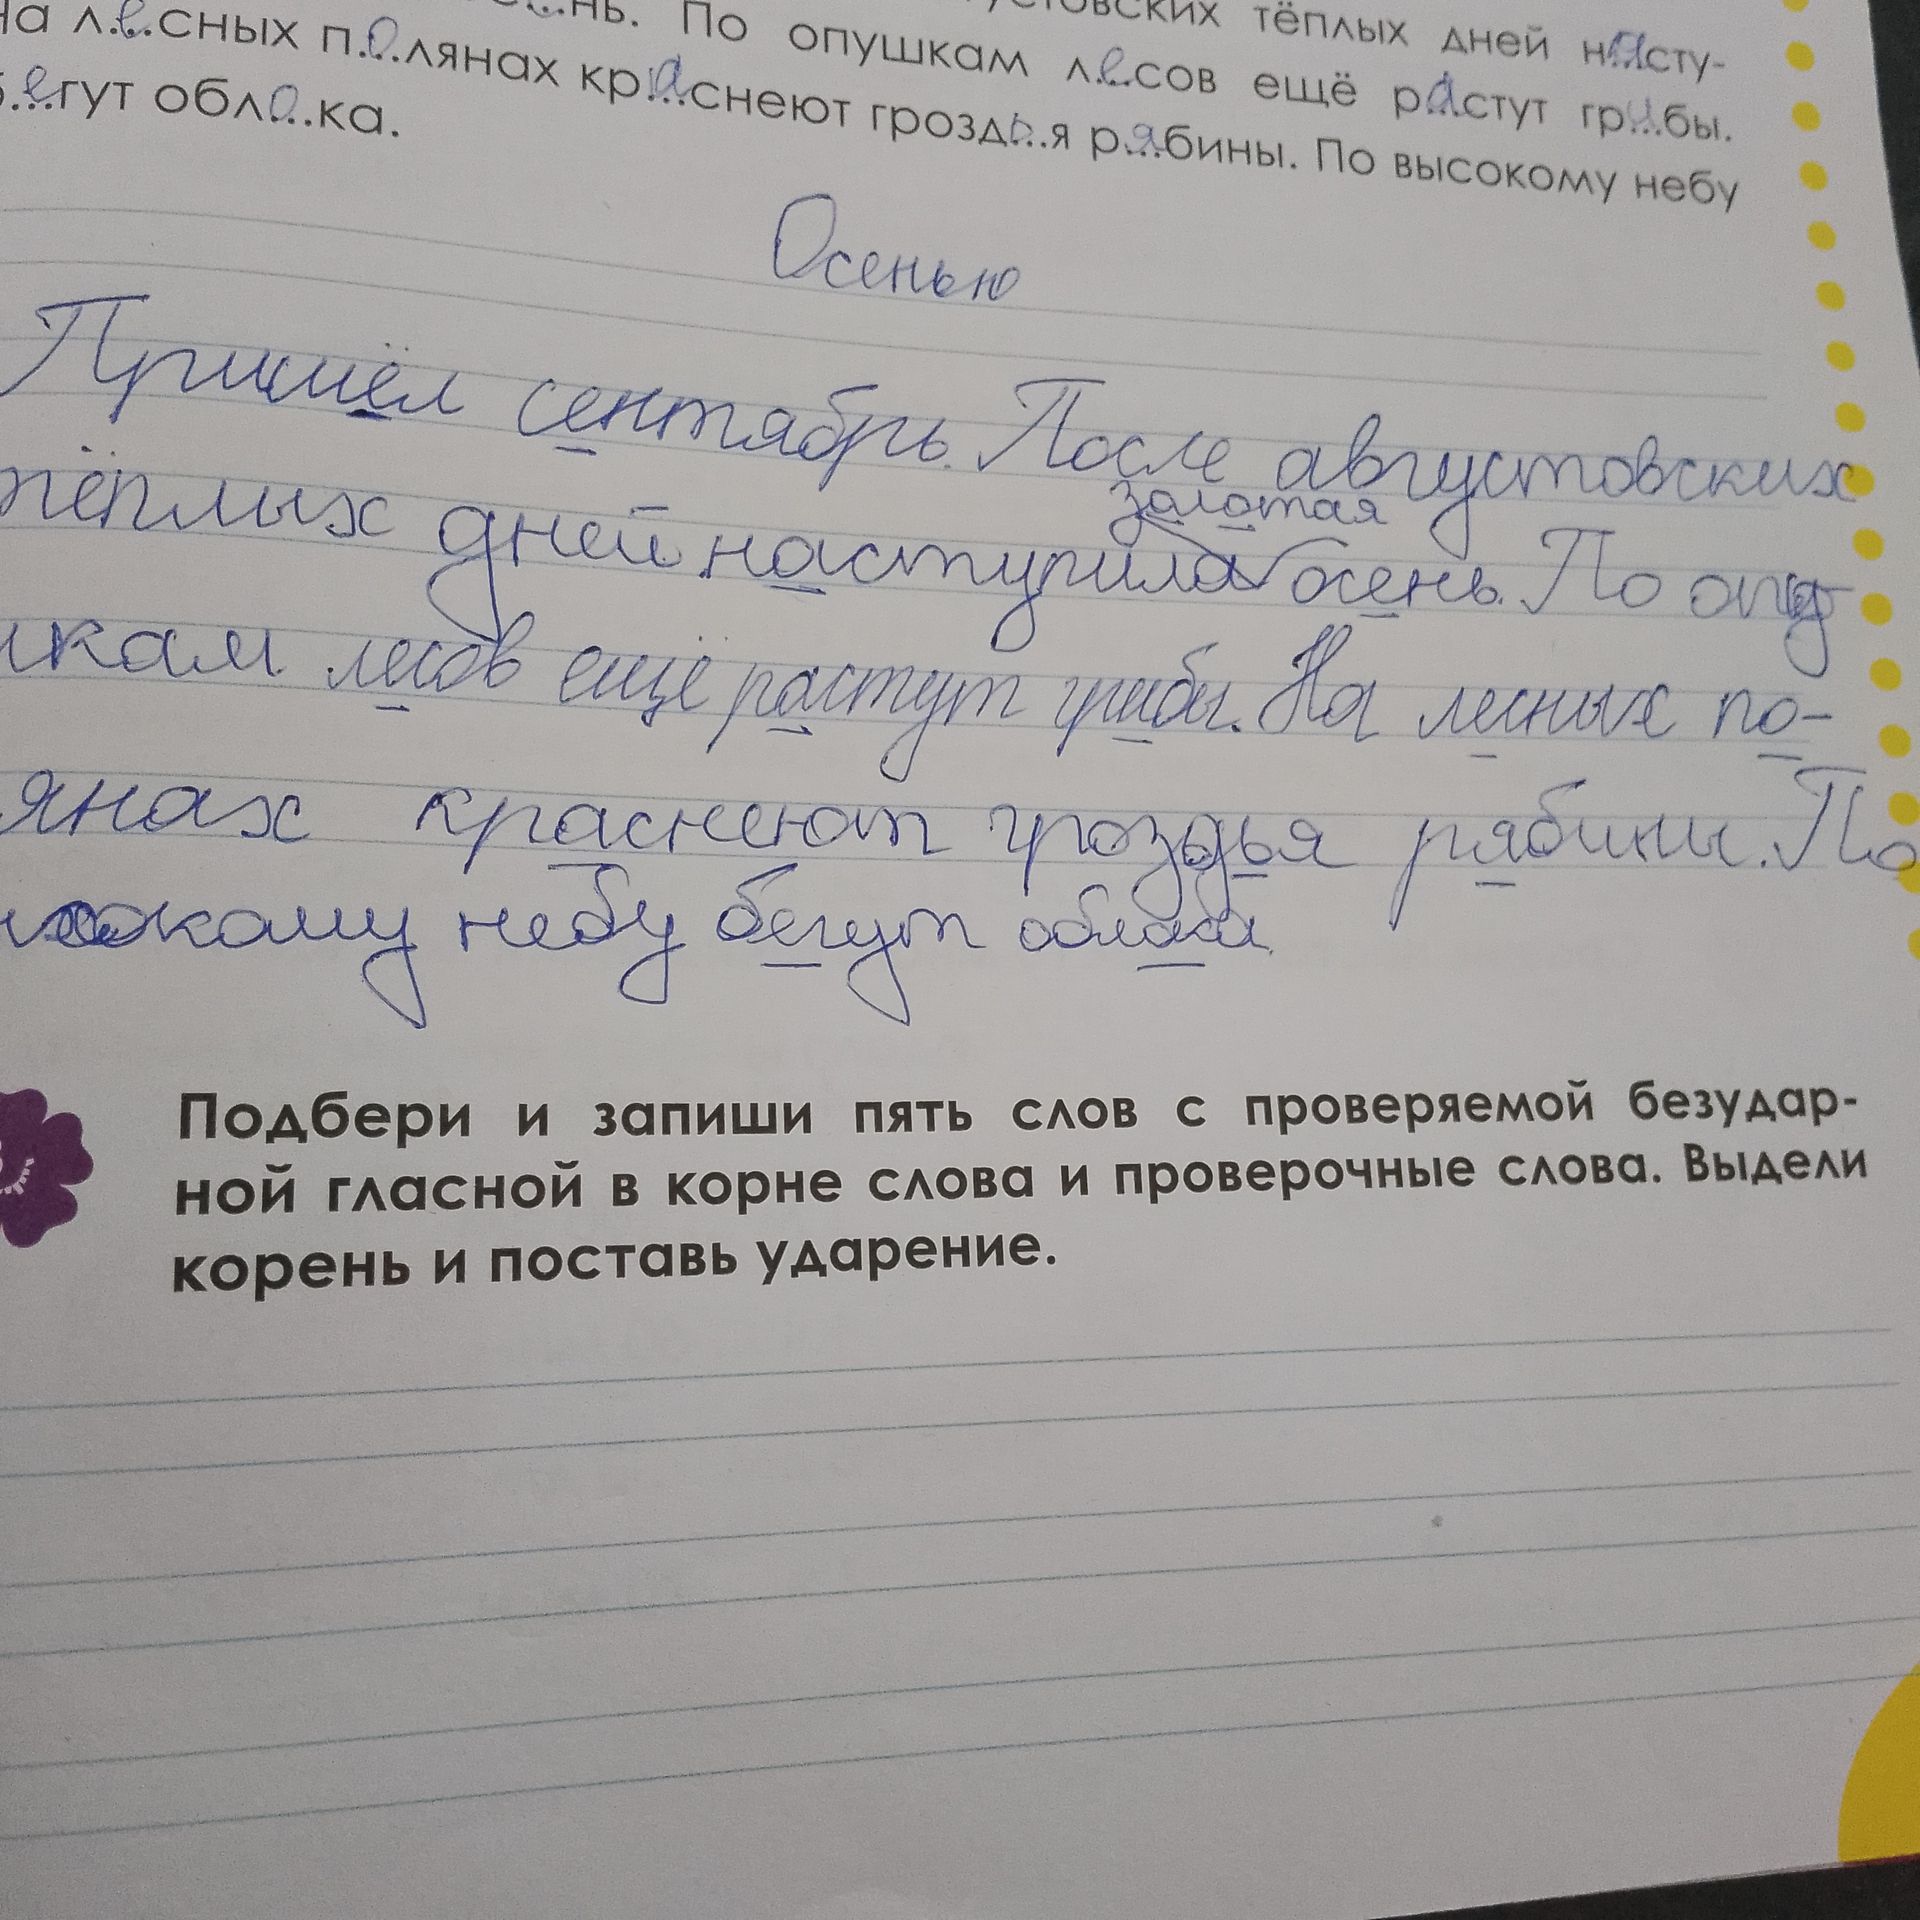 нь. По опушкам л е сов ещё р а стут гр и бы.
тёплых дней н а сту-
На л е сных п о лянах кр а снеют грозд ь я р я бины. По высокому небу
гут обл а ка.
Осенью
Пришёл сентябрь. После августовских
золотая
тёплых дней наступила осень. По опу
шкам лесов ещё растут грибы. На лесных по-
янах краснеют гроздья рябины. По
сокому небу бегут облака.
Подбери и запиши пять слов с проверяемой безудар-
ной гласной в корне слова и проверочные слова. Выдели
корень и поставь ударение.